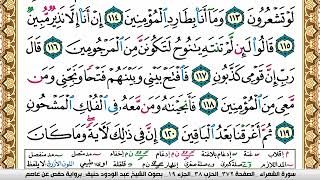 لَوْ تَشْعُرُونَ ١١٣ وَمَا أَنَا بِطَارِدِ الْمُؤْمِنِينَ ١١٤ إِنْ أَنَا إِلَّا نَذِيرٌ مُّبِينٌ
١١٥ قَالُوا لَئِن لَّمْ تَنتَهِ يَا نُوحُ لَتَكُونَنَّ مِنَ الْمَرْجُومِينَ ١١٦ قَالَ
رَبِّ إِنَّ قَوْمِي كَذَّبُونِ ١١٧ فَافْتَحْ بَيْنِي وَبَيْنَهُمْ فَتْحًا وَنَجِّنِي وَمَن
مَّعِيَ مِنَ الْمُؤْمِنِينَ ١١٨ فَأَنجَيْنَاهُ وَمَن مَّعَهُ فِي الْفُلْكِ الْمَشْحُونِ
١١٩ ثُمَّ أَغْرَقْنَا بَعْدُ الْبَاقِينَ ١٢٠ إِنَّ فِي ذَٰلِكَ لَآيَةً ۖ وَمَا كَانَ
سورة الشعراء الصفحة ٣٧٢ الحزب ٣٨ الجزء ١٩ بصوت الشيخ عبد الودود حنيف برواية حفص عن عاصم